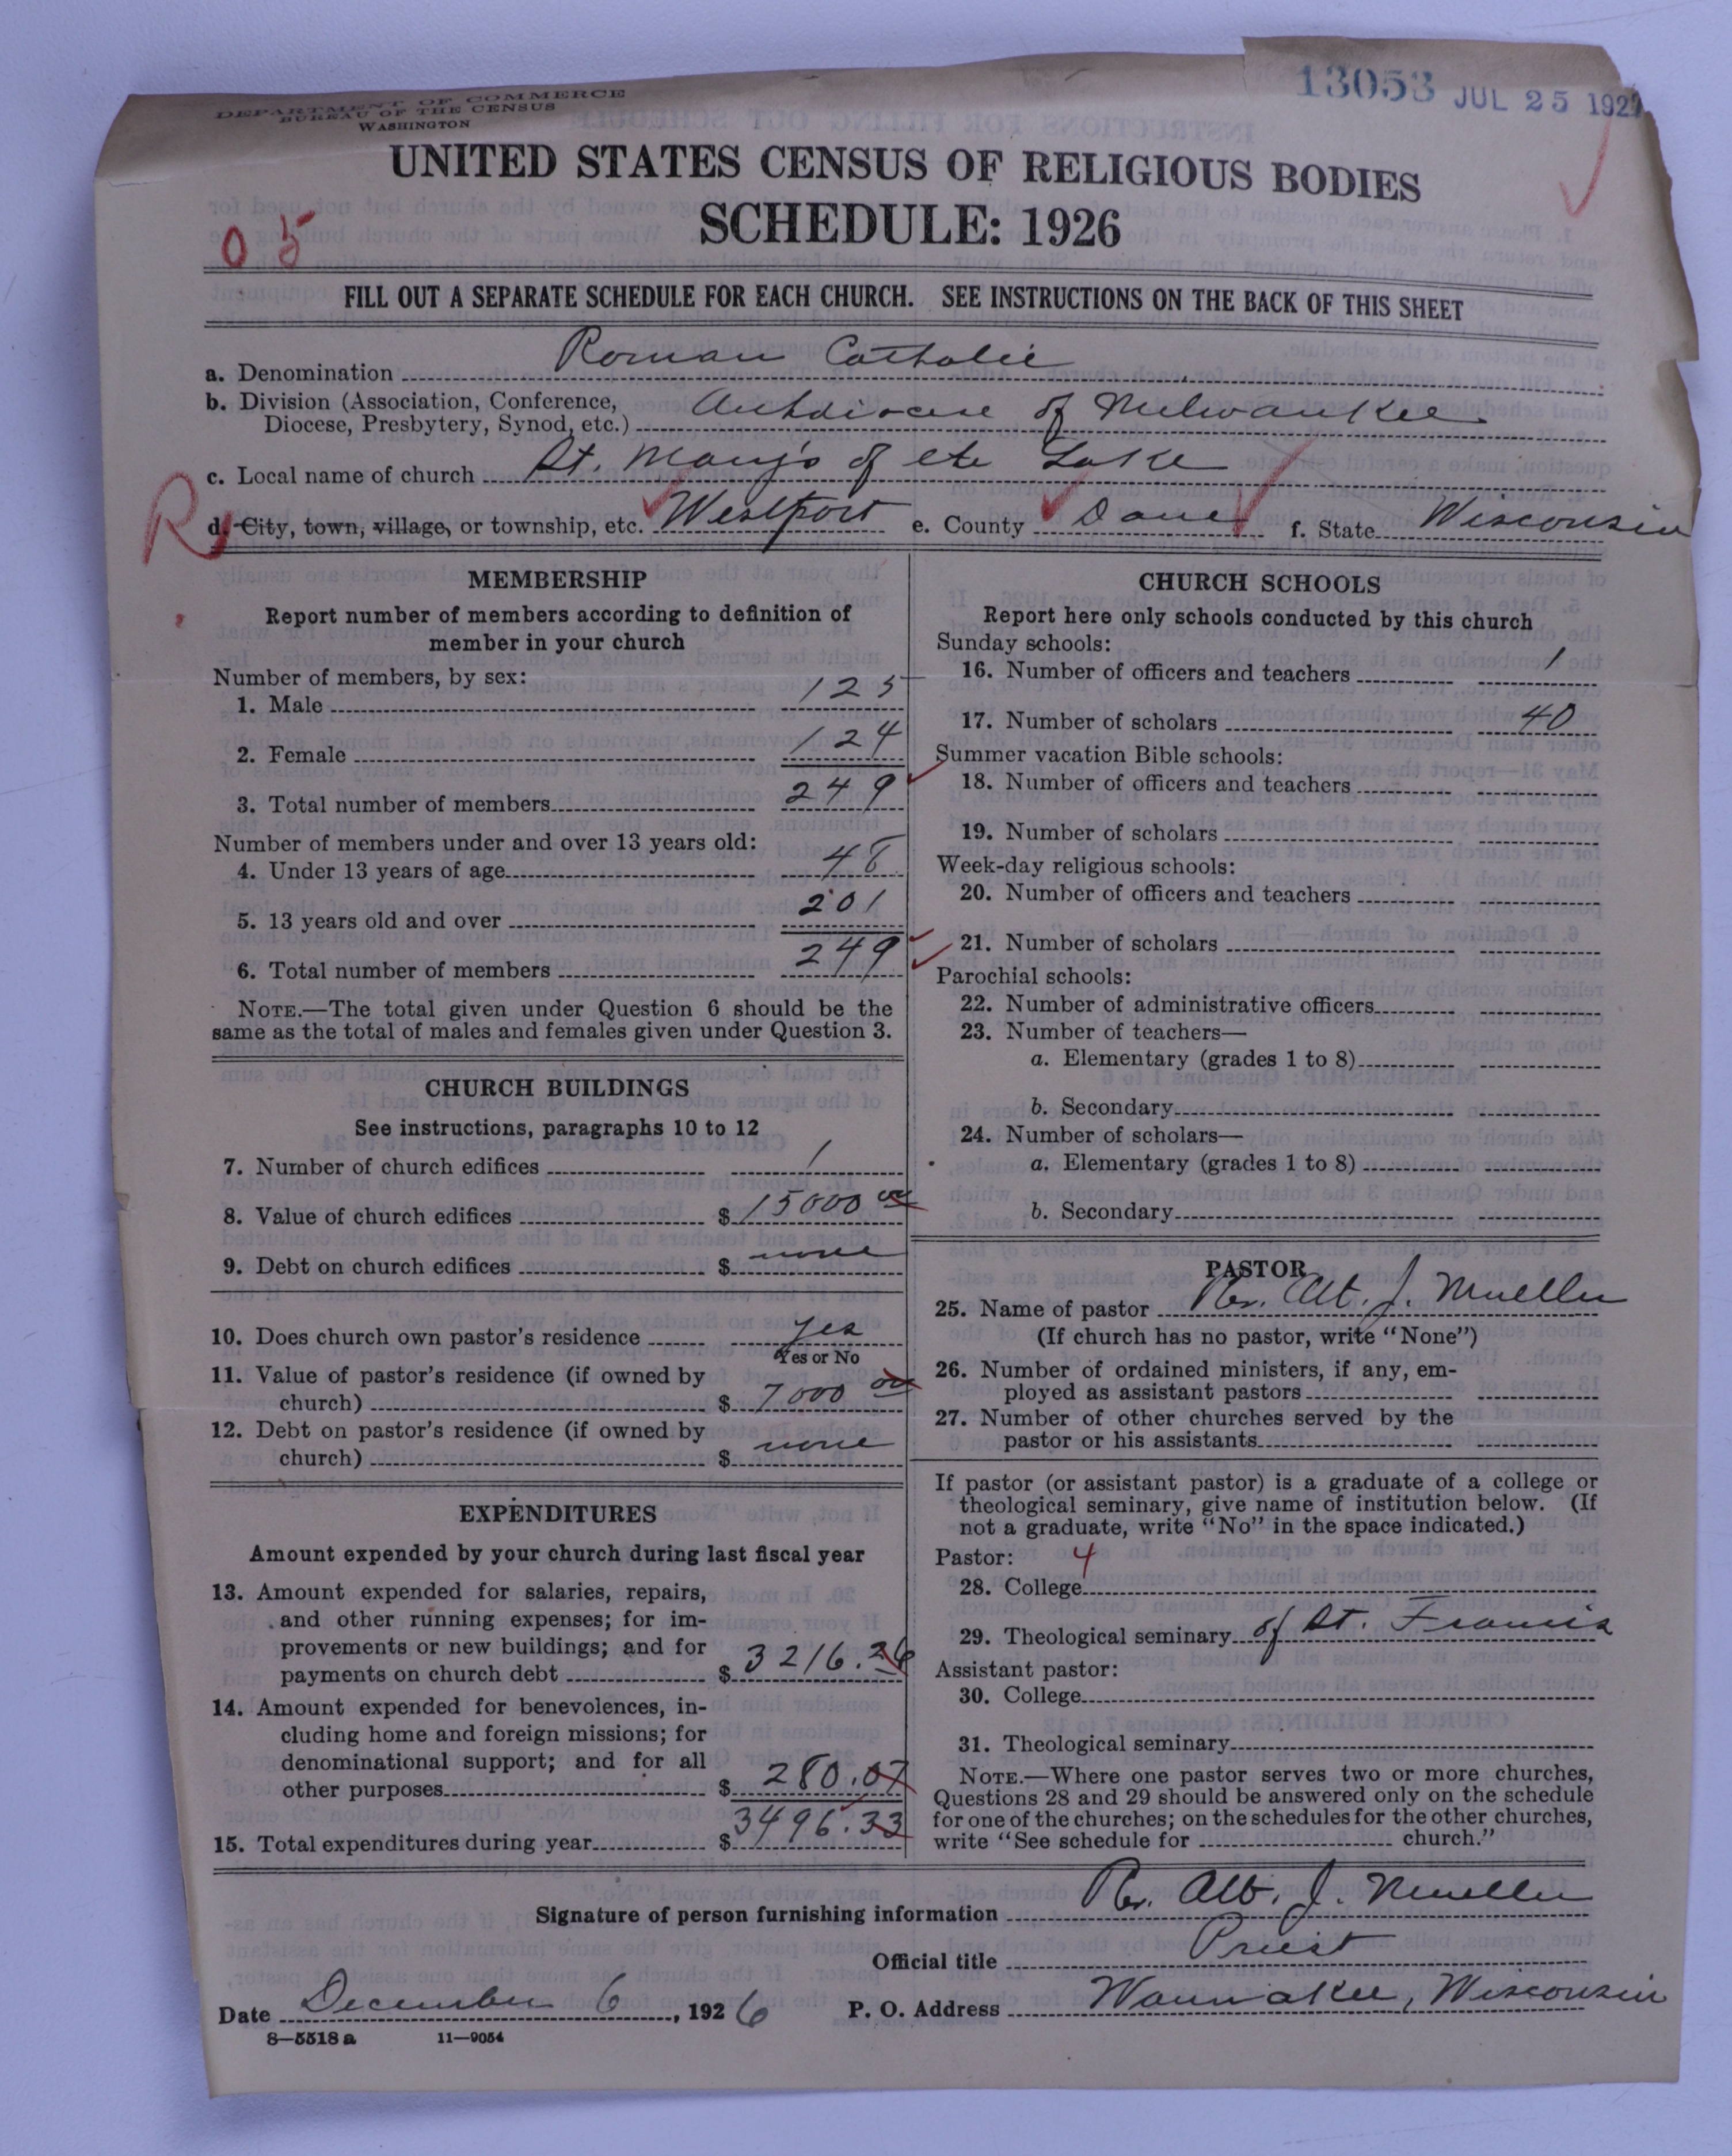 DEPARTMENT OF COMMERCE
BUREAU OF THE CENSUS
WASHINGTON
13053 JUL 25 1927
UNITED STATES CENSUS OF RELIGIOUS BODIES
SCHEDULE: 1926
0 5
FILL OUT A SEPARATE SCHEDULE FOR EACH CHURCH. SEE INSTRUCTIONS ON THE BACK OF THIS SHEET
a. Denomination Roman Catholic
b. Division (Association, Conference,
Diocese, Presbytery, Synod, etc.) Archdiocese of Milwaukee
c. Local name of church St. Mary's of the Lake
R
d. City, town, village, or township, etc. Westport e. County Dane f. State Wisconsin
MEMBERSHIP
Report number of members according to definition of
member in your church
Number of members, by sex:
1. Male 125
2. Female 124
3. Total number of members 249
Number of members under and over 13 years old:
4. Under 13 years of age 48
5. 13 years old and over 201
6. Total number of members 249
NOTE.—The total given under Question 6 should be the
same as the total of males and females given under Question 3.
CHURCH BUILDINGS
See instructions, paragraphs 10 to 12
7. Number of church edifices 1
8. Value of church edifices $ 15000 00
9. Debt on church edifices $ none
10. Does church own pastor's residence yes
Yes or No
11. Value of pastor's residence (if owned by
church) $ 7000 00
12. Debt on pastor's residence (if owned by
church) $ none
EXPENDITURES
Amount expended by your church during last fiscal year
13. Amount expended for salaries, repairs,
and other running expenses; for im-
provements or new buildings; and for
payments on church debt $ 3216.26
14. Amount expended for benevolences, in-
cluding home and foreign missions; for
denominational support; and for all
other purposes $ 280.07
15. Total expenditures during year $ 3496.33
CHURCH SCHOOLS
Report here only schools conducted by this church
Sunday schools:
16. Number of officers and teachers 1
17. Number of scholars 40
Summer vacation Bible schools:
18. Number of officers and teachers
19. Number of scholars
Week-day religious schools:
20. Number of officers and teachers
21. Number of scholars
Parochial schools:
22. Number of administrative officers
23. Number of teachers—
a. Elementary (grades 1 to 8)
b. Secondary
24. Number of scholars—
a. Elementary (grades 1 to 8)
b. Secondary
PASTOR
25. Name of pastor Rev. Alb. J. Mueller
(If church has no pastor, write "None")
26. Number of ordained ministers, if any, em-
ployed as assistant pastors
27. Number of other churches served by the
pastor or his assistants
If pastor (or assistant pastor) is a graduate of a college or
theological seminary, give name of institution below. (If
not a graduate, write "No" in the space indicated.)
Pastor: 4
28. College
29. Theological seminary of St. Francis
Assistant pastor:
30. College
31. Theological seminary
NOTE.—Where one pastor serves two or more churches,
Questions 28 and 29 should be answered only on the schedule
for one of the churches; on the schedules for the other churches,
write "See schedule for church."
Signature of person furnishing information Rev. Alb. J. Mueller
Official title Priest
Date December 6, 1926 P. O. Address Waunakee, Wisconsin
8—5518 a 11—9054